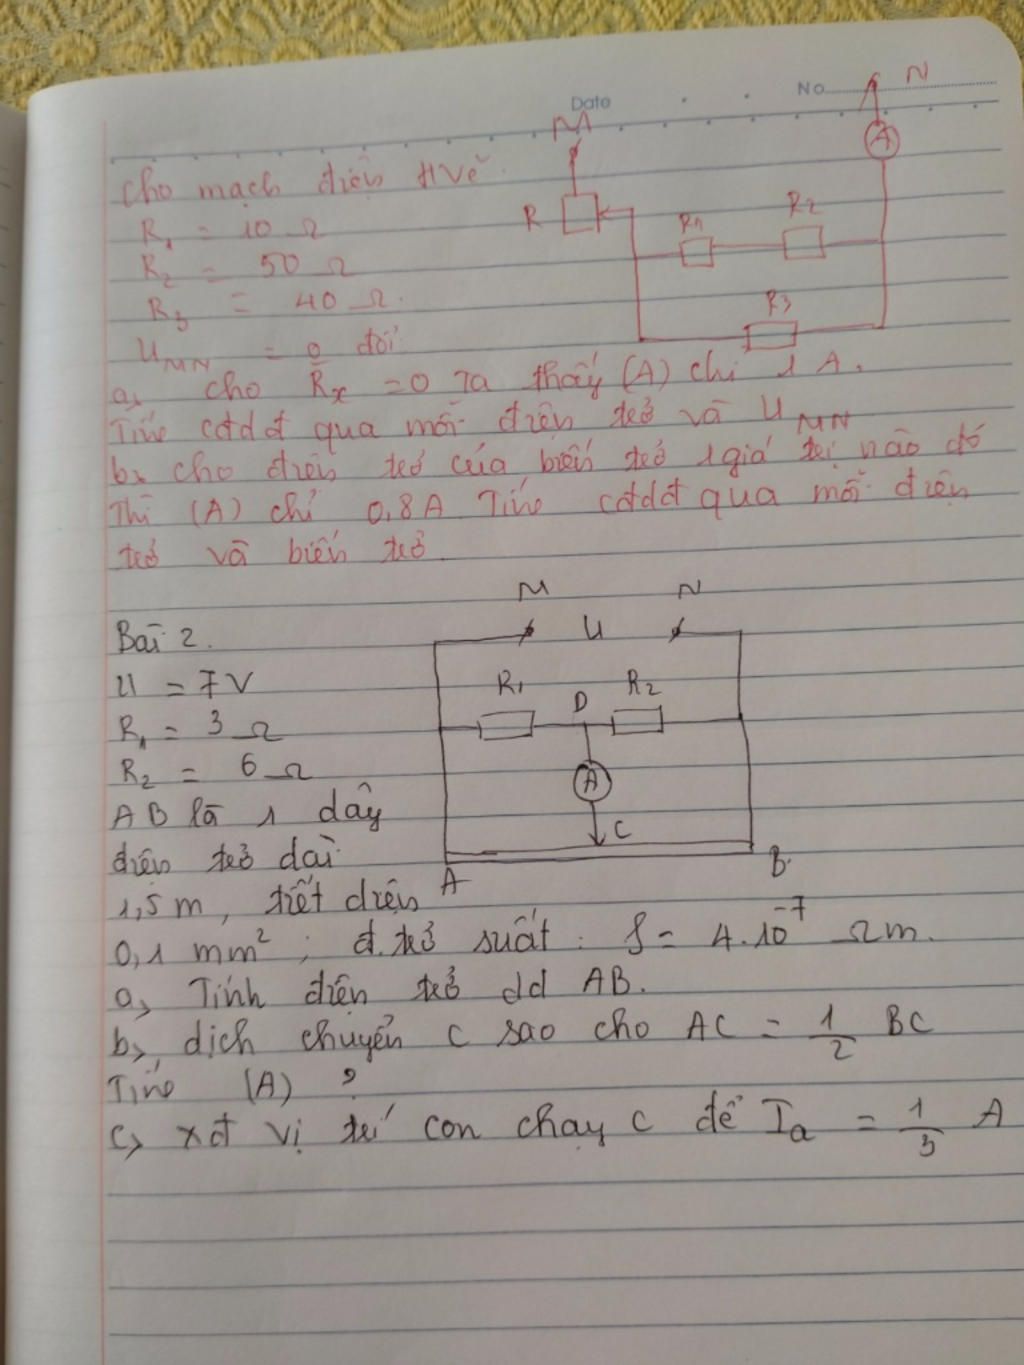 Date
No
M
N
A
Cho mạch điện Hvẽ.
R
R₁
R₂
R₃
R₁ = 10 Ω
R₂ = 50 Ω
R₃ = 40 Ω.
U_MN = 0 đổi
a, cho Rₓ = 0 Ta thấy (A) chỉ 1 A.
Tính cđdđ qua mỗi điện trở và U_MN
b, cho điện trở của biến trở 1 giá trị nào đó
Thì (A) chỉ 0,8A Tính cđdđ qua mỗi điện
trở và biến trở.
M
N
U
Bài 2.
U = 7V
R₁
D
R₂
R₁ = 3 Ω
R₂ = 6 Ω
A
AB là 1 dây
C
điện trở dài
A
B
1,5m, tiết diện
0,1 mm²; đ.trở suất: ρ = 4.10⁻⁷ Ωm.
a, Tính điện trở dd AB.
b, dịch chuyển C sao cho AC = 1/2 BC
Tính (A) ?
c, xđ vị trí con chạy C để Iₐ = 1/3 A